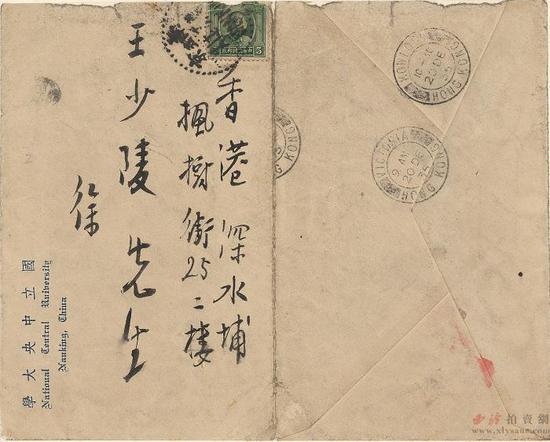 香港深水埔
楓樹街25二樓
王少陵先生
徐
國立中央大學
National Central University
Nanking, China
5
KOWLOON
HONG KONG
20 DE
VICTORIA
HONG KONG
9 AM
20 DE
35
NG KONG
西泠拍賣網
www.xlysauc.com